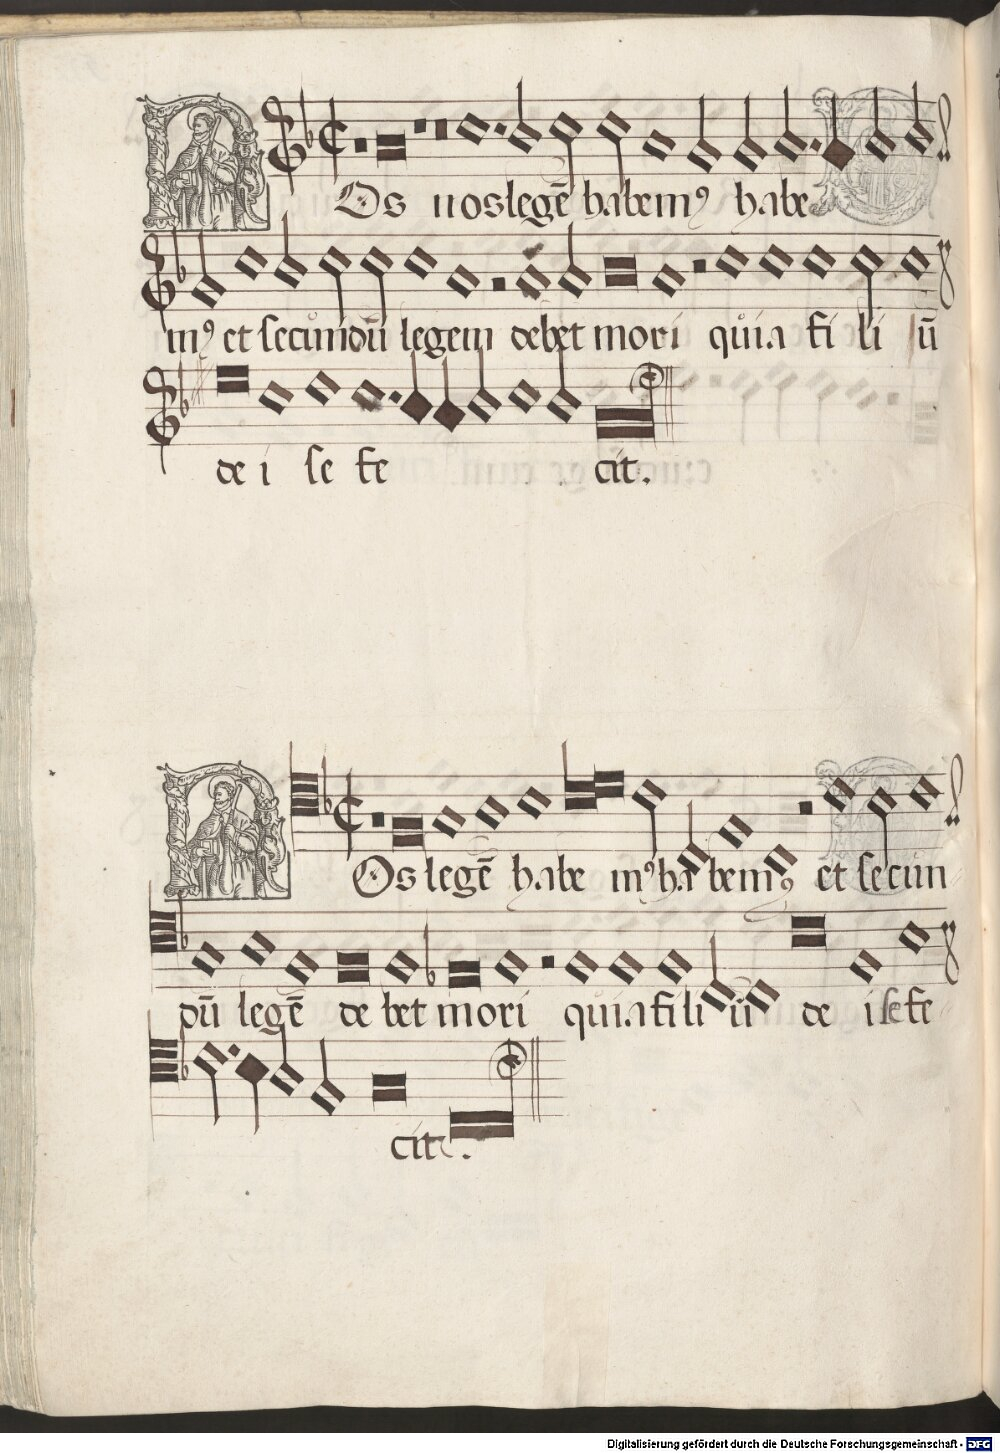 NOs nos legē habemꝰ habe
mꝰ et secundū legem debet mori quia fi li ū
de i se fe cit.
NOs legē habe mꝰ ha bemꝰ et secun
dū legē de bet mori quia fi li ū de i se fe
cit.
Digitalisierung gefördert durch die Deutsche Forschungsgemeinschaft - DFG